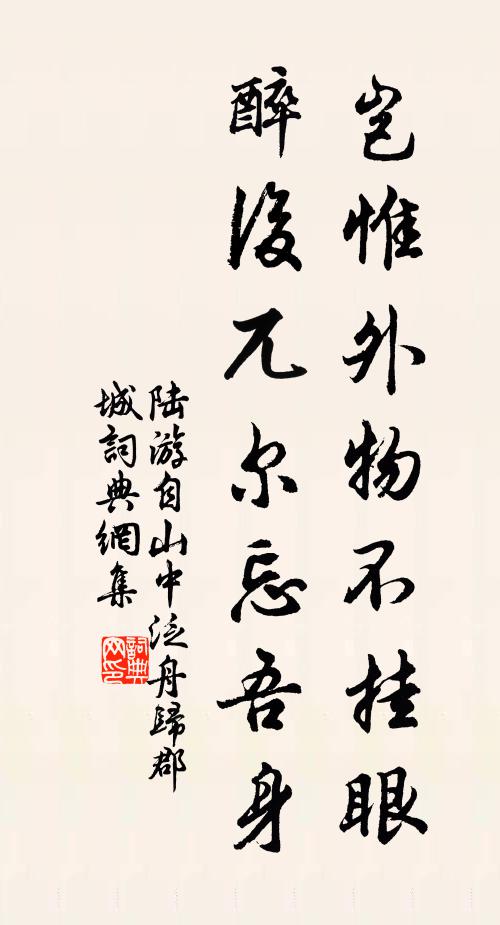 豈惟外物不挂眼
醉後兀尔忘吾身
陆游自山中泛舟歸郡
城詞典網集
詞典
网印